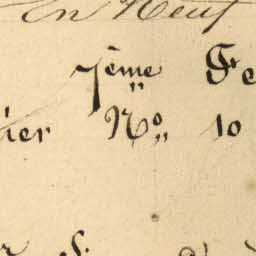 En Neuf
7ème Fe
ier No 10